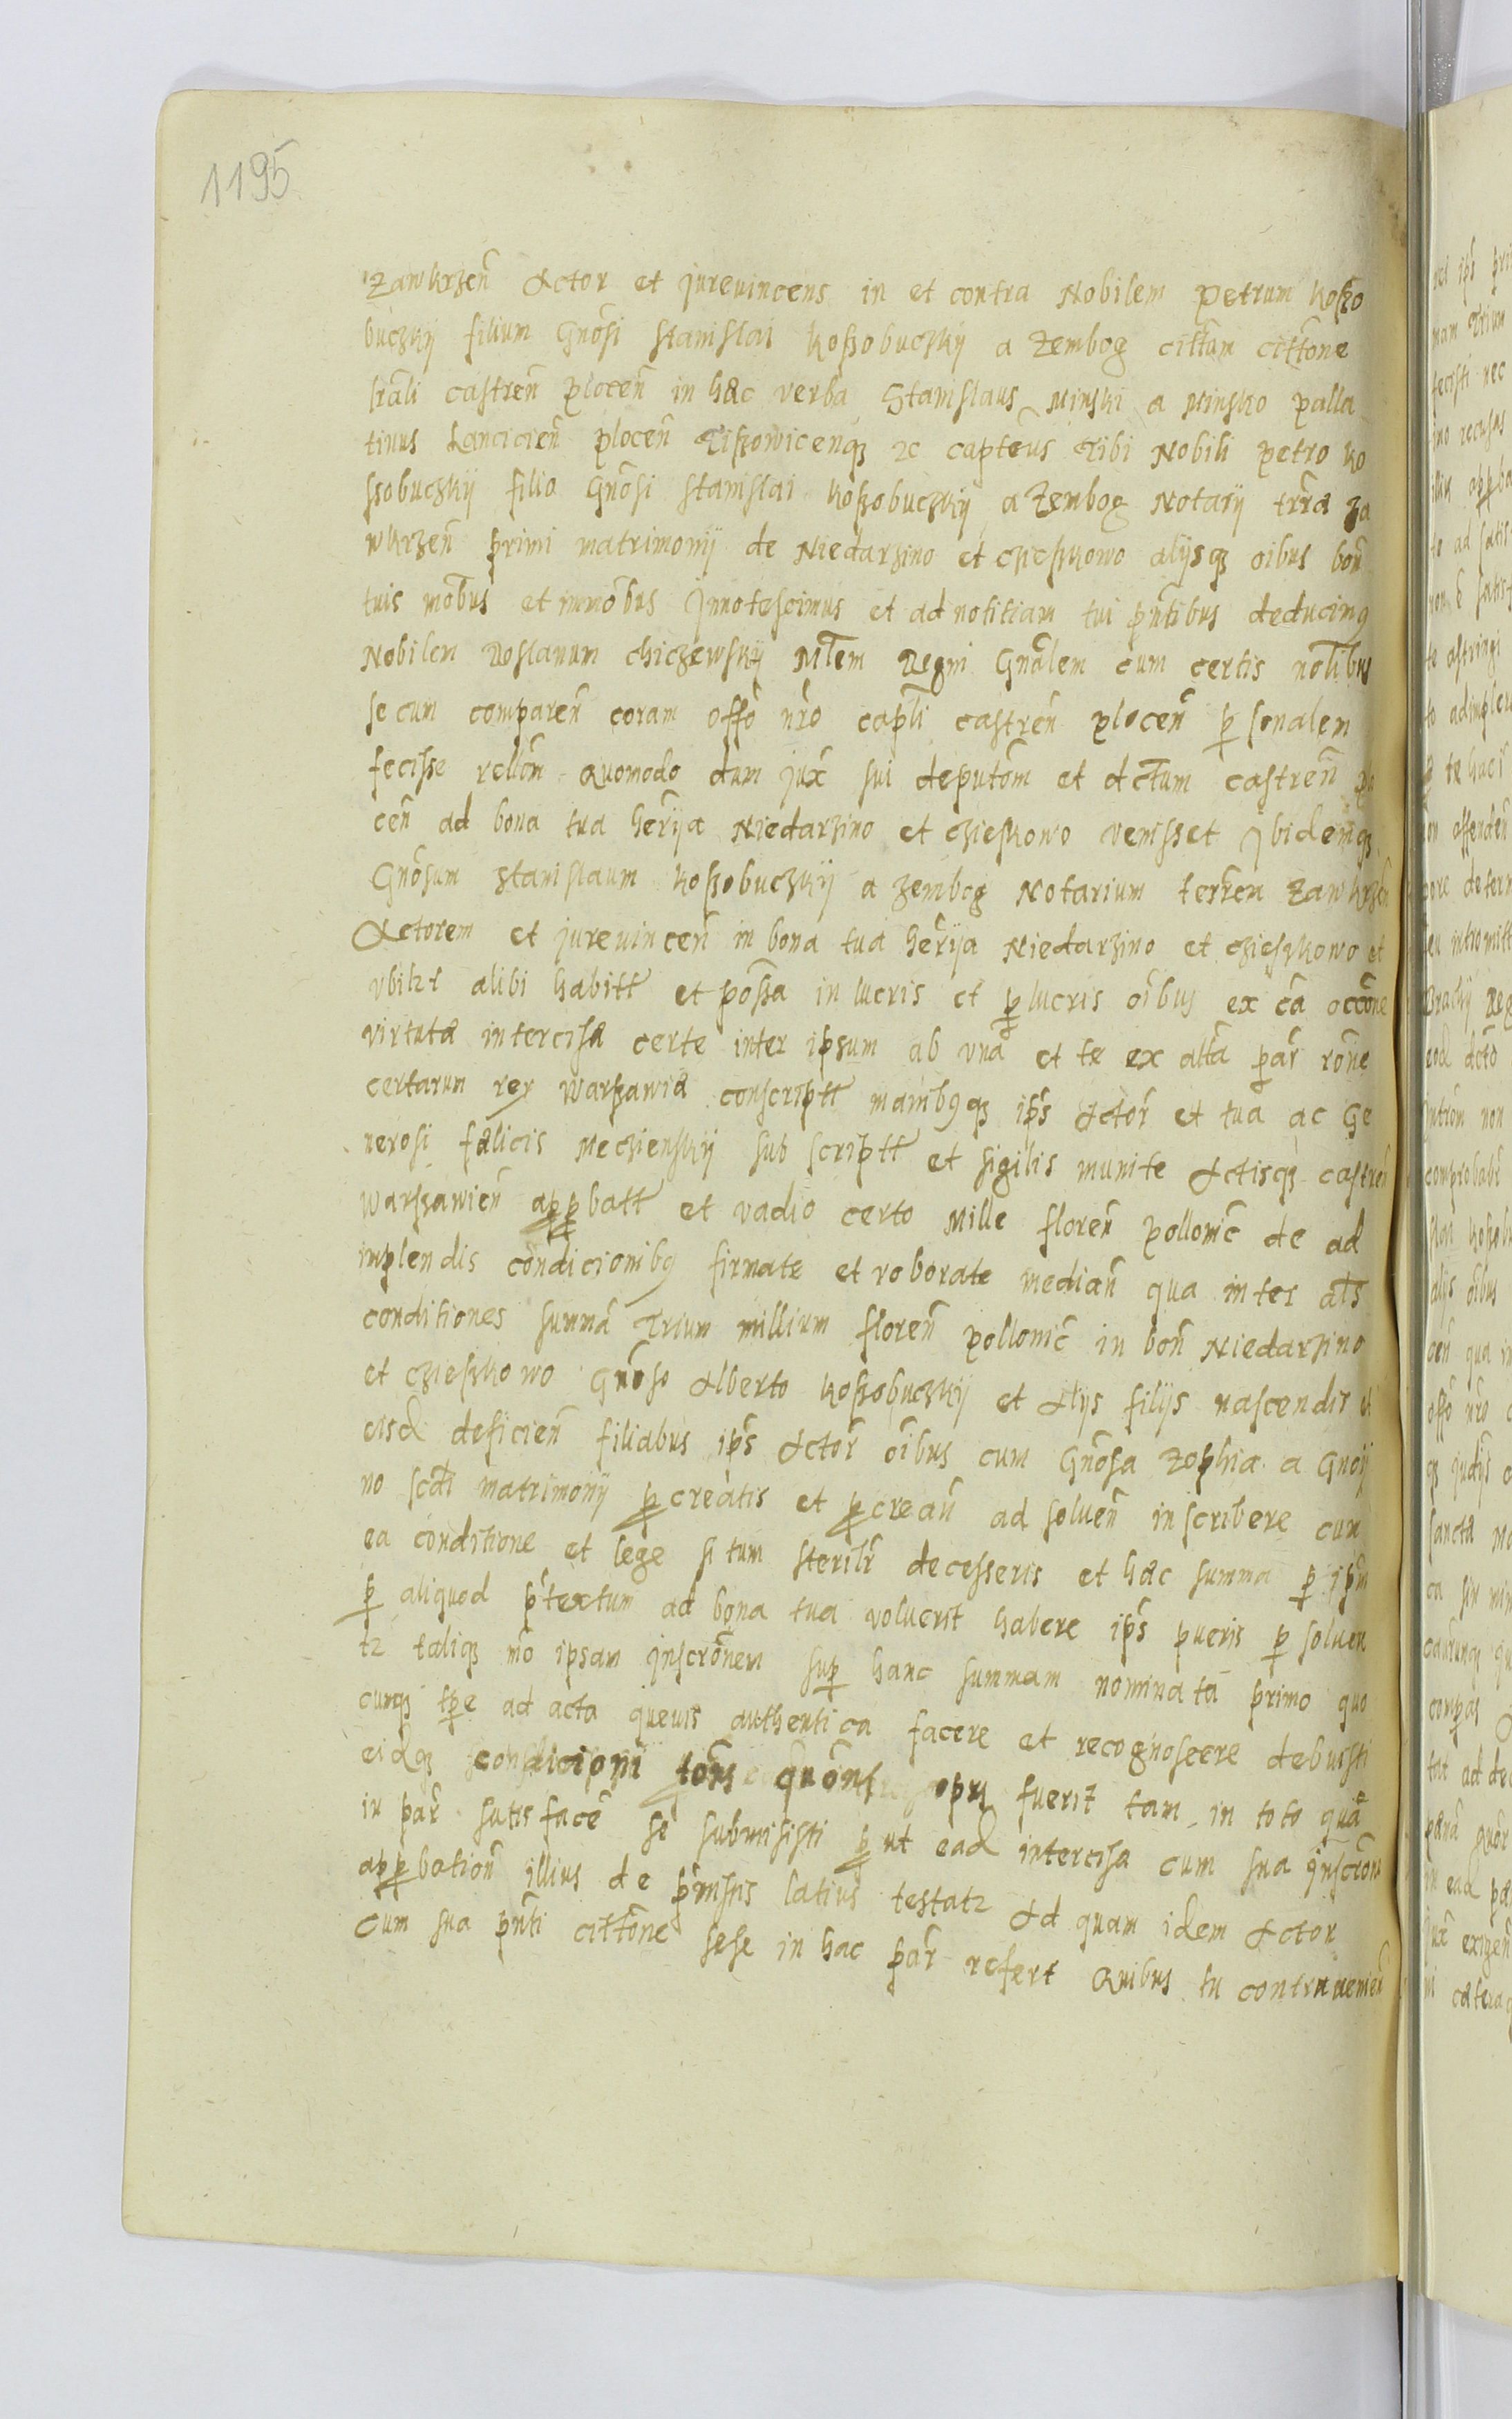 1195
Zawkrzeñ Actor et jurevincens in et contra Nobilem Petrum Koßo
buczkÿ filium Gnõsi Stanislai Koßobuczkÿ a Zembog citt̃am citt̃one
lrãli castreñ ploceñ in hæc verba Stanislaus Minski a Minsko palla
tinus Lancicieñ ploceñ Tißowicenqꝫ ꝛc captẽus Tibi Nobili Petro Ko
ssobuczkÿ filio Gnõsi Stanislai Koßobuczkÿ a Zembog Notarÿ trr̃æ Za
wkrzeñ primi matrimonÿ de Niedarzino et Czieskowo alÿsqꝫ oĩbus boñ
tuis mõbus et immõbus Innotescimus et ad notitiam tui pñtibus deducimꝯ
Nobilem Roslanum Chiczewskÿ Ml̃em Regni Gnãlem cum certis nõl̃ibus
secum compareñ coram offõ nr̃o capl̃i castreñ ploceñ ꝑsonalem
fecisse rellõm Quomodo dum jux̃ sui deputõm et dct̃um castreñ plo
ceñ ad bona tua herr̃ÿa Niedarzino et Czieskowo venisset Ibidemqꝫ
Gnõsum Stanislaum Koßobuczkÿ a Zembog Notarium terren Zawkrzeñ
Actorem et jurevinceñ in bona tua herr̃ÿa Niedarzino et Czieskowo et
vbilꝫt alibi habitt̃ et poss̃a in lucris et ꝓlucris oĩbus ex cã occõne
virtutæ intercisæ certe inter ipsum ab vna et te ex alt̃a par̃ rõne
certarum rerꝫ Warsawiæ conscriptt̃ manibꝯqꝫ ips̃ Actor̃ et tua ac Ge
nerosi Fælicis Meczienskÿ subscriptt̃ et sigilis munite Actisqꝫ castreñ
Warszawieñ apꝓbatt̃ et vadio certo Mille floreñ pollonic̃ de ad
implendis condicionibꝯ firmate et roborate mediañ qua inter al̃s
conditiones summã Trium millium floreñ pollonic̃ in boñ Niedarzino
et Czieskowo Gnõso Alberto Koßobuczkÿ et Alÿs filÿs nascendis vl
eisd̃ deficieñ filiabus ips̃ Actor̃ oĩbus cum Gnõsa Zophia a Gnoÿ
no scdĩ matrimonÿ ꝓcreatis et ꝓcreañ ad solueñ inscribere cum
ea conditione et lege si tum sterilr̃ decesseris et hæc summa ꝑ ipm̃
ꝑ aliquod p̃textum ad bona tua voluerit habere ips̃ pueris ꝑsoluen
tꝛ taliqꝫ mõ ipsam inscrõnem suꝑ hanc summam nominatã primo quo
cunqꝫ tꝑe ad acta queuis authentica facere et recognoscere debuisti
eidqꝫ condicioni tõns quõns opus fuerit tam in toto quã
in par̃ satisfacẽ se submisisti ꝓut ead̃ intercisa cum sua inscrõne
apꝓbationẽ illius de p̃missis latius testatꝛ Ad quam idem Actor
cum sua pñti citt̃one sese in hac par̃ refert Quibus tu contraueniẽ